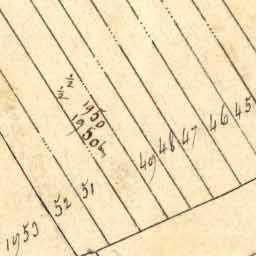 ½
½
1950
1950b
45
46
47
48
49
51
52
1953